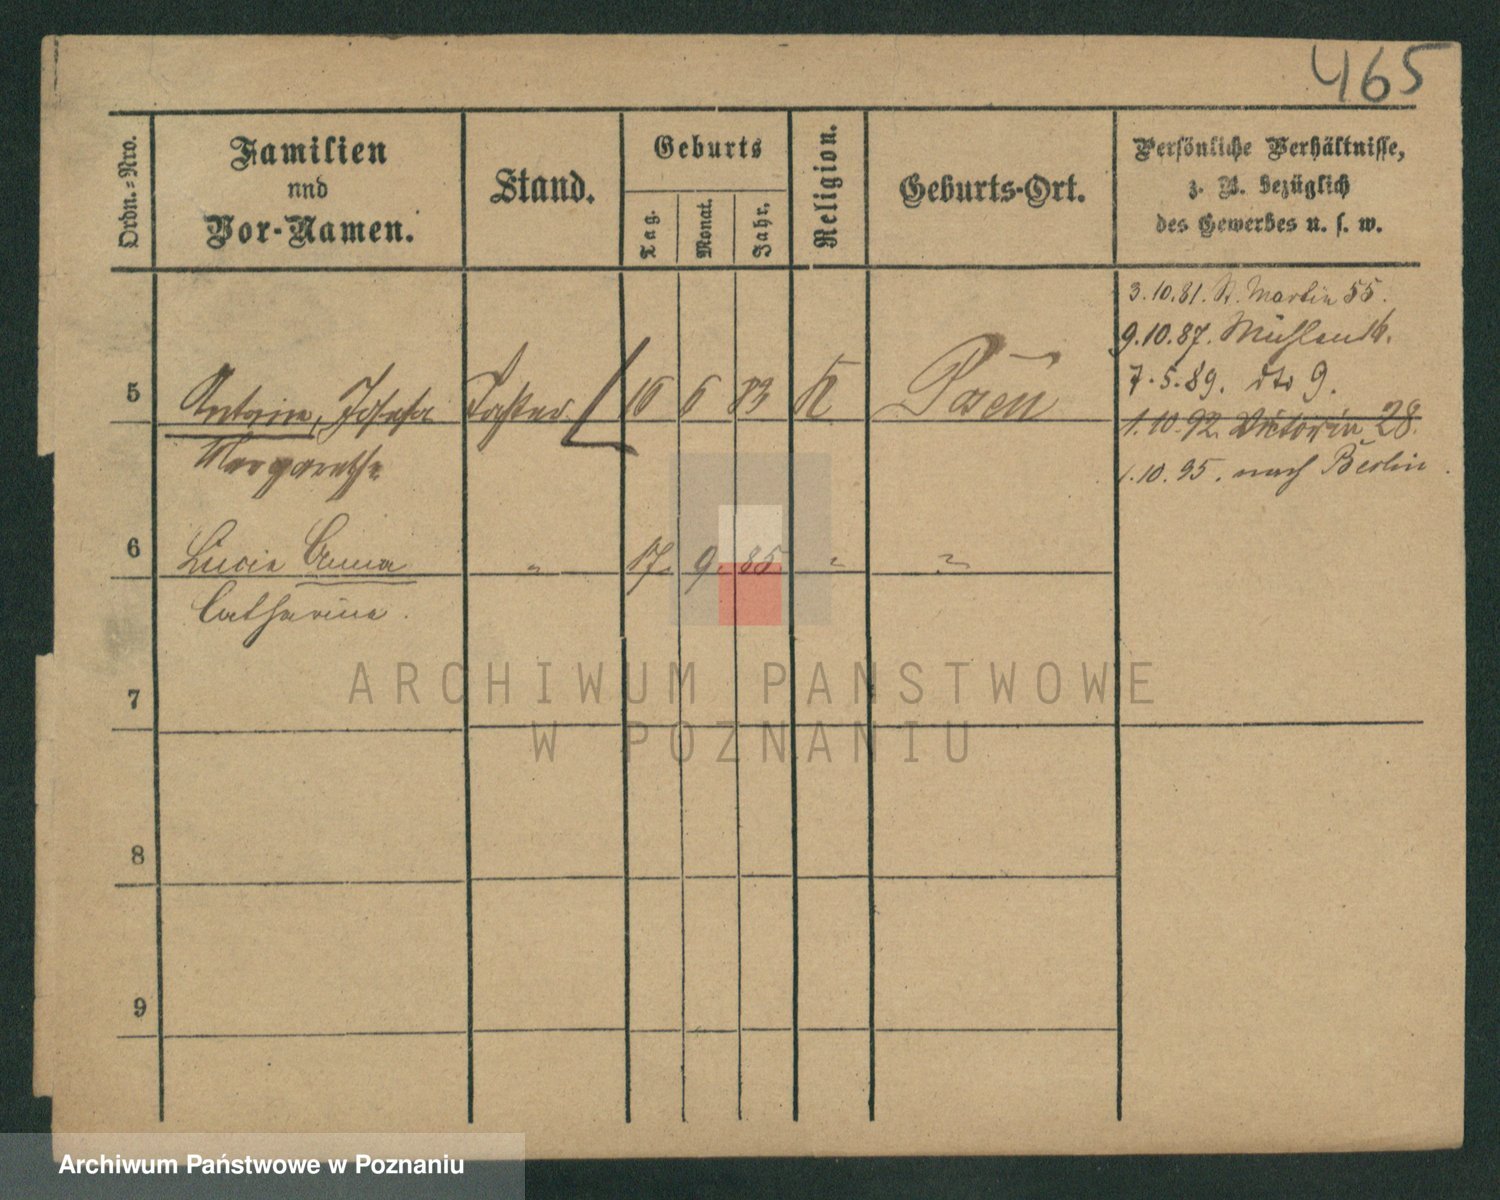 465
Ordn.-Nro.
Familien
und
Vor-Namen.
Stand.
Geburts
Tag.
Monat.
Jahr.
Religion.
Geburts-Ort.
Persönliche Verhältnisse,
z. B. bezüglich
des Gewerbes u. s. w.
3.10.81. St. Martin 55.
9.10.87. Mühlen 16.
7.5.89. dto 9.
1.10.92. Victoria 28.
1.10.95. nach Berlin.
5 Antonie, Josefa Tochter 16 6 83 K Posen
Margarethe
6 Lucie Anna " 17. 9. 85 " "
Catharina.
7
8
9
ARCHIWUM PAŃSTWOWE
W POZNANIU
Archiwum Państwowe w Poznaniu